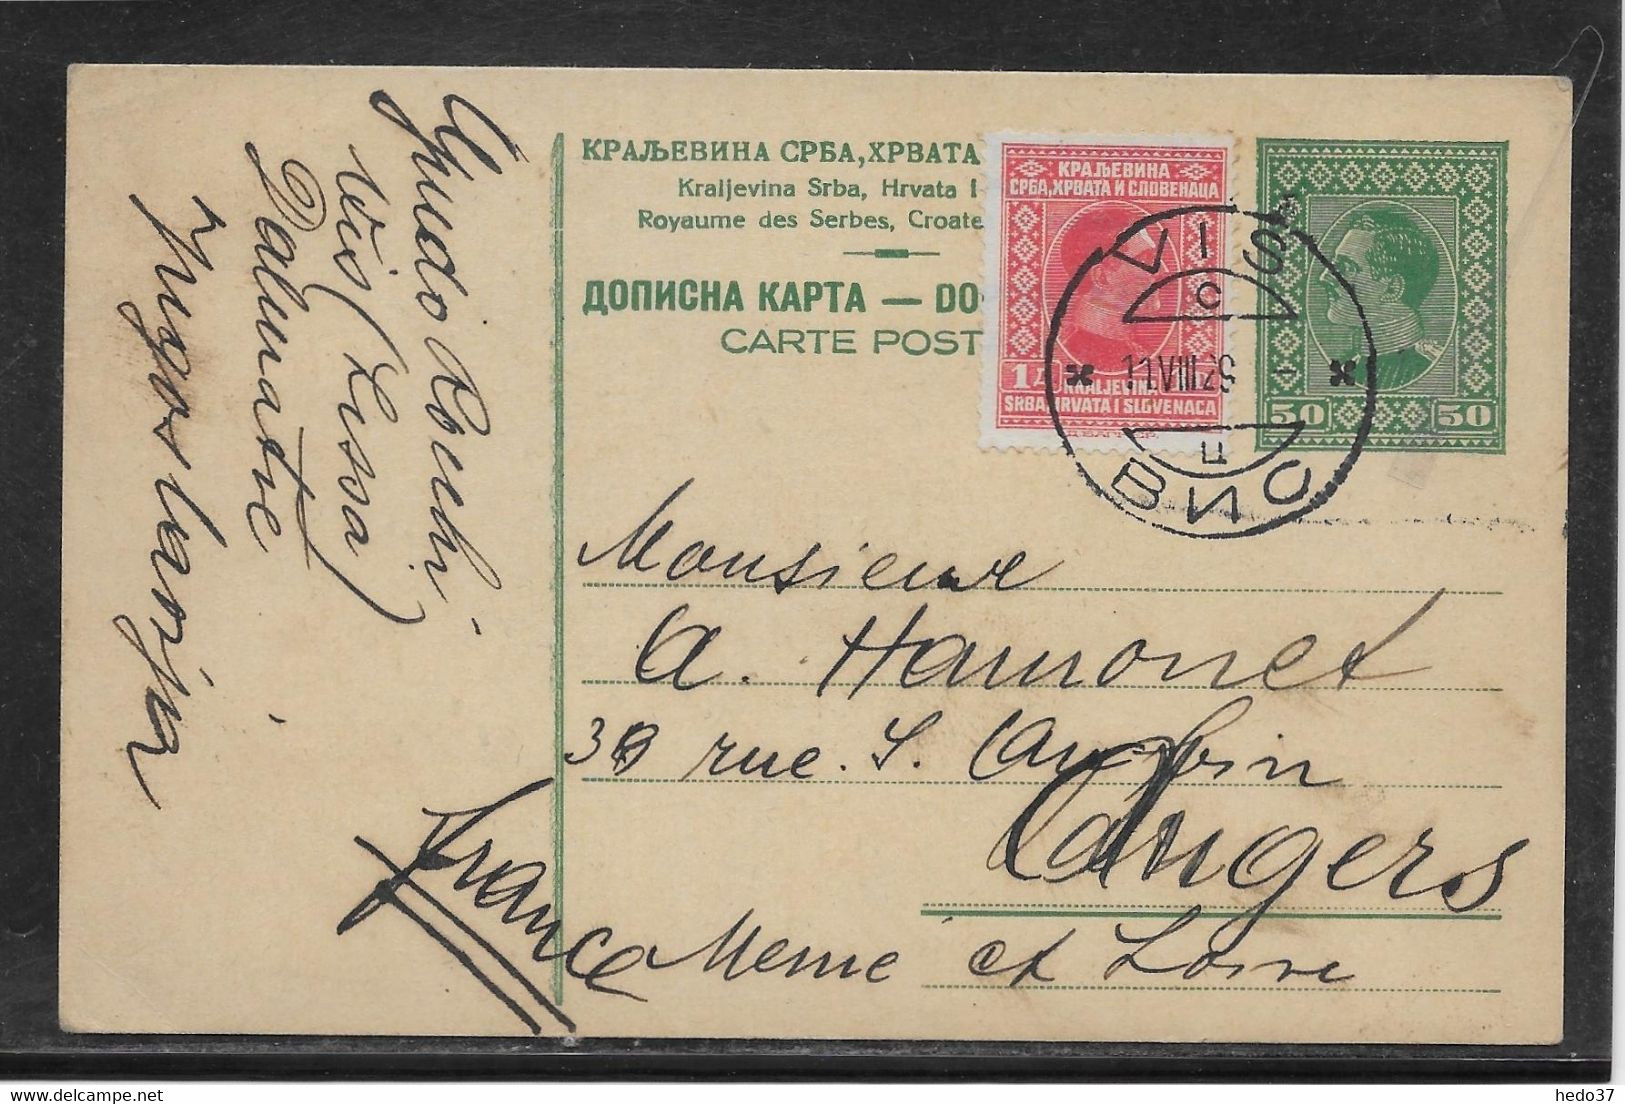 КРАЉЕВИНА СРБА, ХРВАТА
Kraljevina Srba, Hrvata I
Royaume des Serbes, Croate
ДОПИСНА КАРТА — DO
CARTE POST
КРАЉЕВИНА
СРБА, ХРВАТА И СЛОВЕНАЦА
1
KRALJEVINA
SRBA, HRVATA I SLOVENACA
50 50
VIS
C
11 VIII 29
ВИС
Vis (Lissa)
Dalmatie
Jugoslavija
Monsieur
A. Hamonet
rue. S. Aubin
Angers
Meine et Loire
France
hedo37